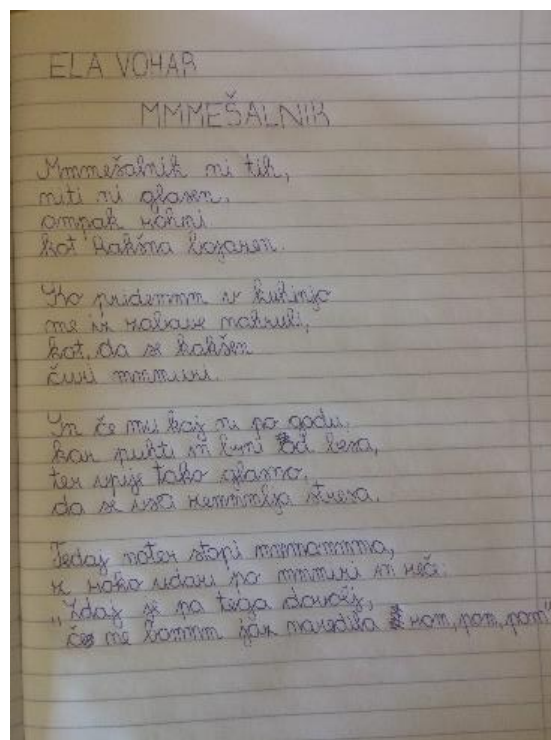 ELA VOHAR
MMMEŠALNIK
Mmmešalnik ni tih,
niti ni glasen,
ampak rohni
kot kakšna bojazen.
Ko pridemmm v kuhinjo
me iz zabave nahruli,
kot, da se kakšen
čuri mmmuri.
In če mu kaj ni po godu,
kar puhti in brni od besa,
ter vpije tako glasno,
da se vsa zemmmlja stresa.
Tedaj noter stopi mmmammma,
z roko udari po mmmizi in reče:
„Zdaj je pa tega dovolj,
če ne bommm jaz naredila rom, pom, pom!"